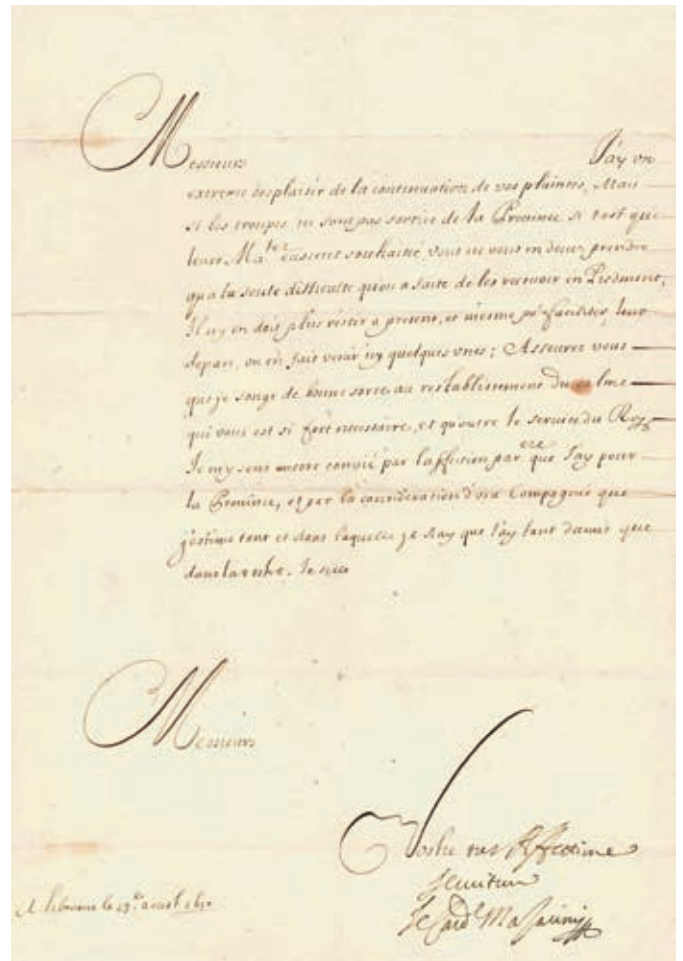 Messieurs J'ay un
extreme desplaisir de la continuation de vos plaintes, Mais
si les troupes ne sont pas sorties de la Province si tost que
leurs Ma.tez eussent souhaitté, vous ne vous en devez prendre
qu'a la seule difficulté qu'on a faite de les recevoir en Piedmont,
Il n'y en doit plus rester a present, et mesme po.r faciliter leur
depart, on en fait venir icy quelques unes; Asseurez vous
que je songe de bonne sorte au restablissement du calme
qui vous est si fort necessaire, et qu'outre le service du Roy
Je m'y sens encore convié par l'affection par.ere que J'ay pour
la Province, et par la consideration d'vre Compagnie que
j'estime tant et dans laquelle je sçay que J'ay tant d'amis que
dans la Je suis
Messieurs
Vostre tres Affectionné
serviteur
le Card.l Mazarini
A Libourne le 29.e aoust 1650